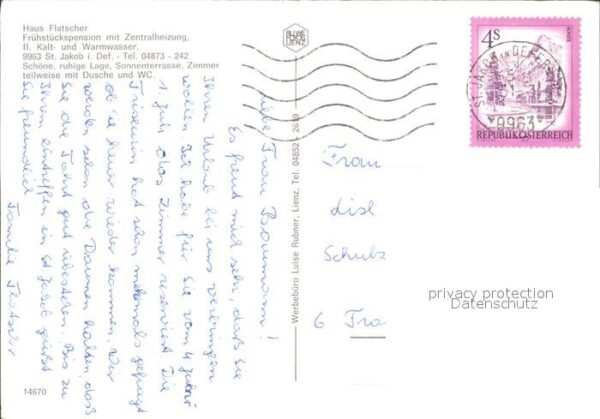 Haus Flatscher
Frühstückspension mit Zentralheizung,
fl. Kalt- und Warmwasser.
9963 St. Jakob i. Def. - Tel. 04873 - 242
Schöne, ruhige Lage, Sonnenterrasse, Zimmer
teilweise mit Dusche und WC.
Liebe Frau Baumann!
Es freut mich sehr, daß Sie
Ihren Urlaub bei uns verbringen
wollen. Ich habe für Sie vom 4 Juli
1 Juli das Zimmer reserviert. Die
Friseurin hat schon mehrmals gefragt
ob sie heuer wieder kommen. Wir
werden schon die Daumen halten, daß
Sie die Fahrt gut überstehen. Bis zu
Ihrem eintreffen in St Jakob grüßt
Sie freundlich
Familie Flatscher
Werbebüro Luise Rubner, Lienz, Tel. 04852 - 2649
4S
REPUBLIK ÖSTERREICH
ST. JAKOB IN DEFER
9963
Frau
Lisl
Schulz
6 Fra
privacy protection
Datenschutz
14670